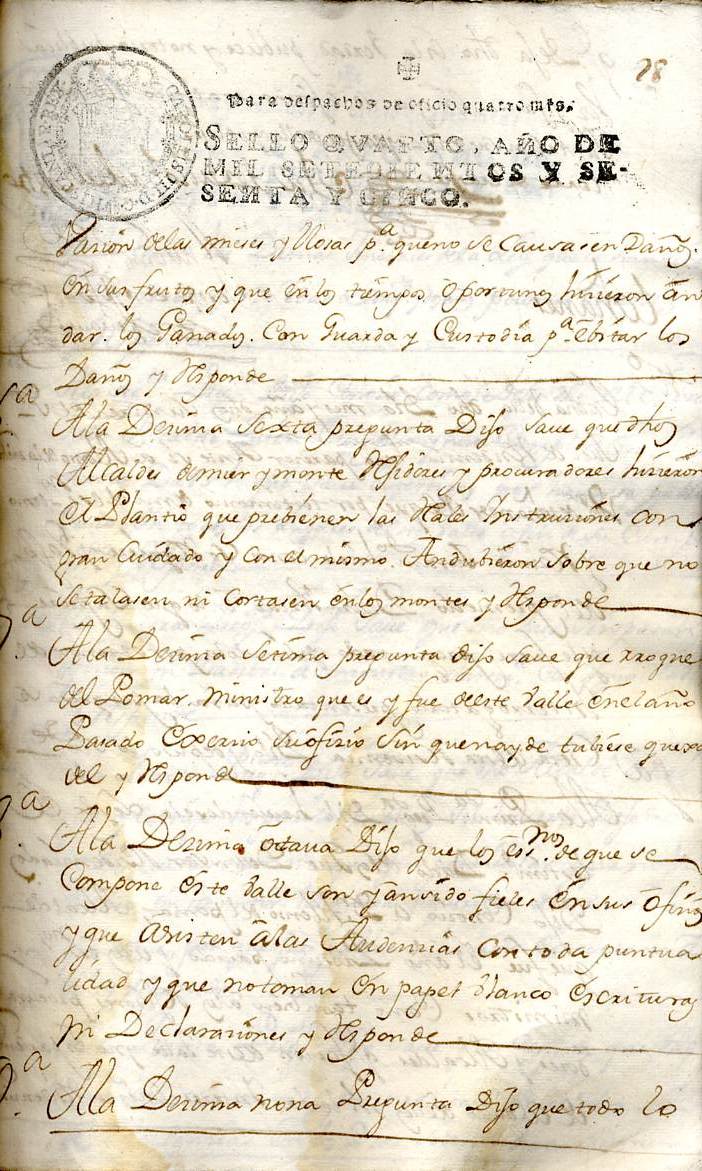 78
Para despachos de oficio quatro mrs.
SELLO QVARTO, AÑO DE
MIL SETECIENTOS Y SE-
SENTA Y CINCO.
de las mieses y llosas pa. que no se Causasen Daños.
en sus frutos y que en los tiempos Oportunos hicieron an
dar. los Ganados. Con Guarda y Custodia pa. Ebitar los
Daños y Responde
A la Dezima Sexta pregunta Dijo save que dhos
Alcaldes de mier y monte Rexidores y procuradores hicieron
el Plantio que prebienen las Rales Instruciones con
gran Cuidado y con el mismo. Andubieron sobre que no
se talasen ni Cortasen en los montes y Responde
A la Dezima Setima pregunta dijo save que rroque
del Pomar. Ministro que es y fue deeste Valle en el año
Pasado Exercio su ofizio sin que nayde tubiese quexa
del y Responde
A la Dezima octava Dijo que los essnos. de que se
Compone este Valle son y an sido fieles en sus ofizios
y que Asisten a las Audencias con toda puntua
lidad y que no toman en papel blanco escrituras
ni Declaraziones y Responde
A la Dezima nona Pregunta Dijo que todo lo